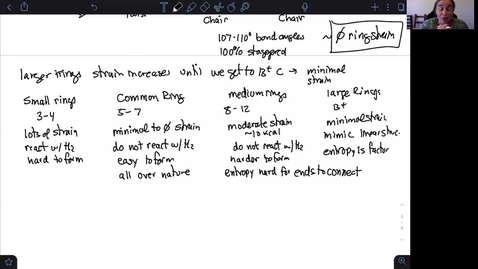 Twist
Chair Chair
107-110° bond angles
100% staggered
~ Ø ring strain
larger rings strain increases until we get to 13+ C → minimal strain
Small rings
3-4
lots of strain
react w/ H2
hard to form
Common Ring
5-7
minimal to Ø strain
do not react w/ H2
easy to form
all over nature
medium rings
8-12
moderate strain
~10 kcal
do not react w/ H2
harder to form
entropy hard for ends to connect
large Rings
13+
minimal strain
mimic linear struc.
entropy is factor